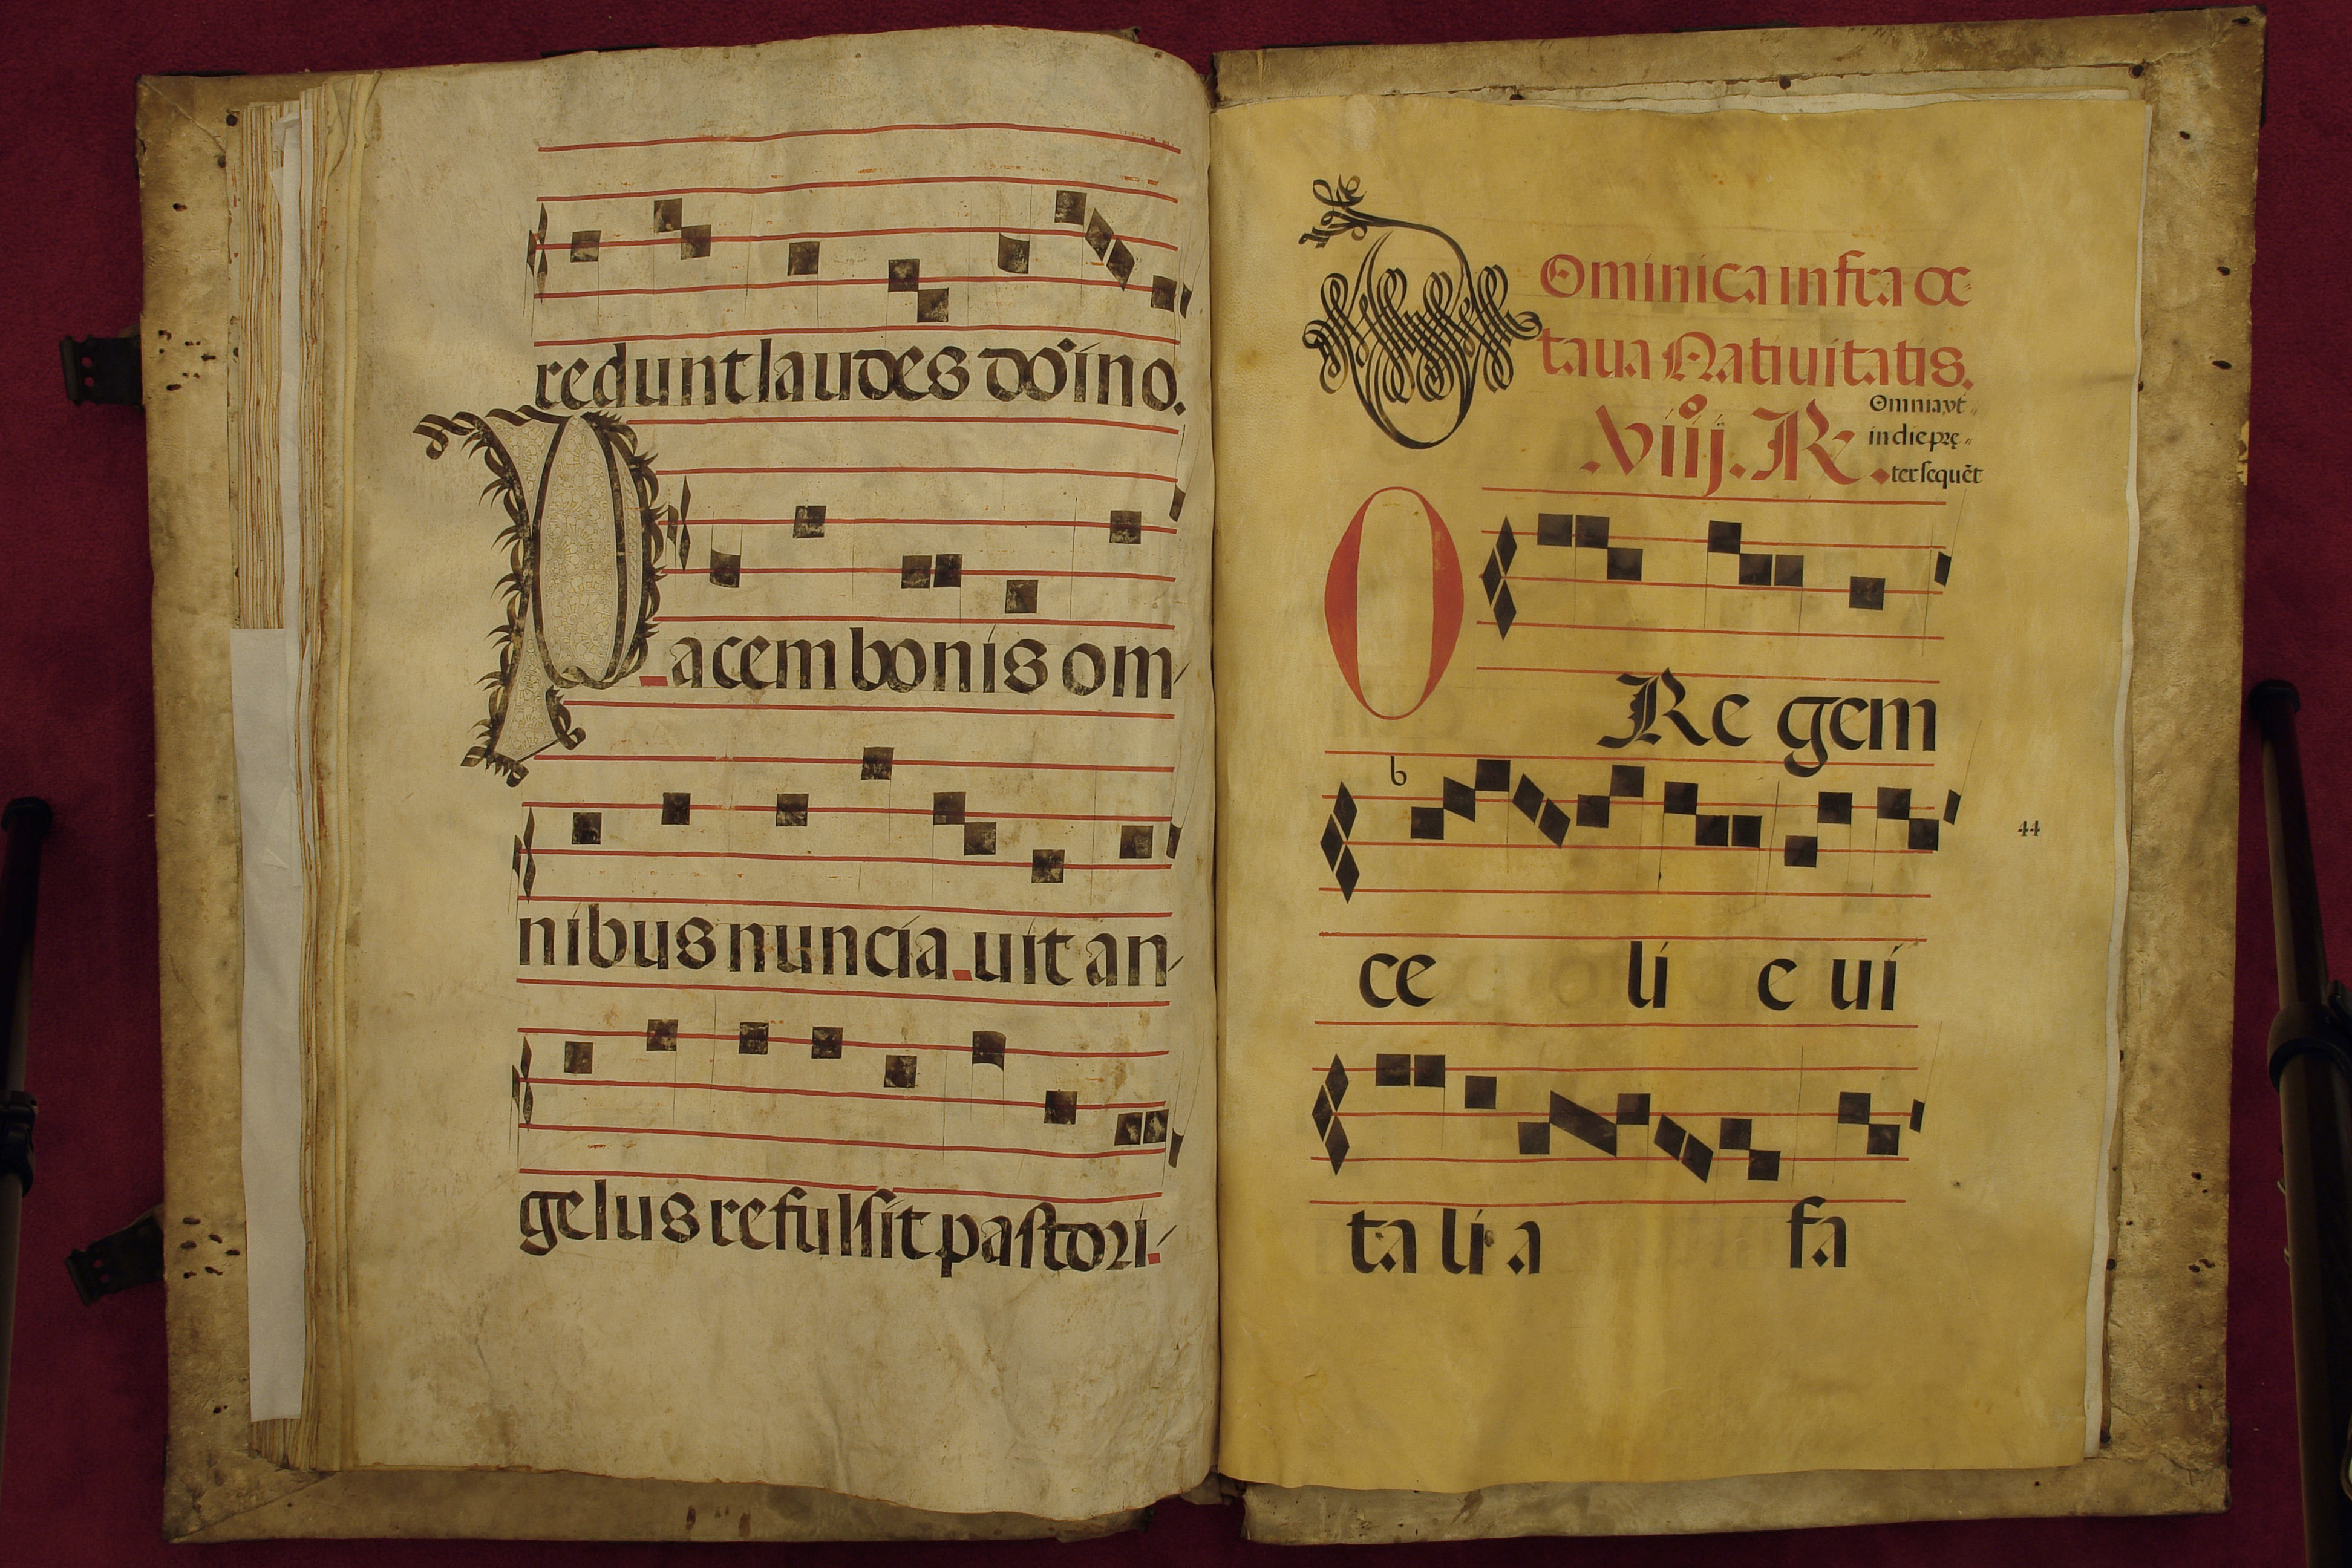 redunt laudes do͂ino.
Pacem bonis om-
nibus nuncia uit an-
gelus refulsit pastori-
Ominica infra oc=
taua Natiuitatis.
.viij. R.
Omnia vt=
in die prę=
ter sequēt
O Re gem
ce li e ui
44
ta li a fa